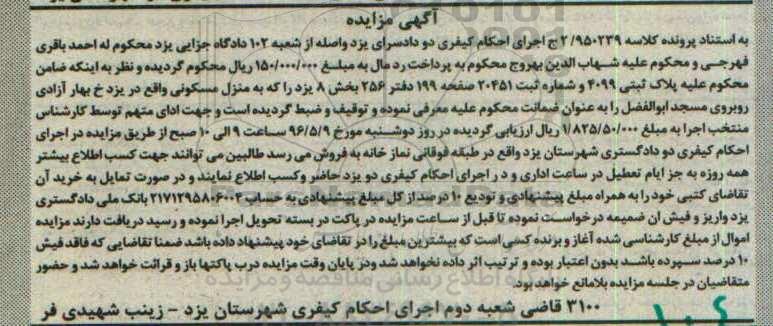 آگهی مزایده
به استناد پرونده کلاسه ۹۵۰۲۳۹/ ۲ ج اجرای احکام کیفری دو دادسرای یزد واصله از شعبه ۱۰۲ دادگاه جزایی یزد محکوم له احمد باقری
فهرجی و محکوم علیه شهاب الدین بهروج محکوم به پرداخت رد مال به مبلسغ ۱۵۰/۰۰۰/۰۰۰ ریال محکوم گردیده و نظر به اینکه ضامن
محکوم علیه پلاک ثبتی ۴۰۹۹ و شماره ثبت ۲۰۴۵۱ صفحه ۱۹۹ دفتر ۲۵۶ بخش ۸ یزد را که به منزل مسکونی واقع در یزد خ بهار آزادی
روبروی مسجد ابوالفضل را به عنوان ضمانت محکوم علیه معرفی نموده و توقیف و ضبط گردیده است و جهت ادای متهم توسط کارشناس
منتخب اجرا به مبلغ ۱/۸۲۵/۵۰/۰۰۰ ریال ارزیابی گردیده در روز دوشنبه مورخ ۹۶/۵/۹ ساعت ۹ الی ۱۰ صبح از طریق مزایده در اجرای
احکام کیفری دو دادگستری شهرستان یزد واقع در طبقه فوقانی نماز خانه به فروش می رسد طالبین می توانند جهت کسب اطلاع بیشتر
همه روزه به جز ایام تعطیل در ساعت اداری و در اجرای احکام کیفری دو یزد حاضر وکسب اطلاع نمایند و در صورت تمایل به خرید آن
تقاضای کتبی خود را به همراه مبلغ پیشنهادی و تودیع ۱۰ درصد از کل مبلغ پیشنهادی به حساب ۲۱۷۱۲۹۵۸۰۶۰۰۳ بانک ملی دادگستری
یزد واریز و فیش ان ضمیمه درخواست نموده تا قبل از ساعت مزایده در پاکت در بسته تحویل اجرا نموده و رسید دریافت دارند مزایده
اموال از مبلغ کارشناسی شده آغاز و برنده کسی است که بیشترین مبلغ را در تقاضای خود پیشنهاد داده باشد ضمنا تقاضایی که فاقد فیش
۱۰ درصد سپرده باشد بدون اعتبار بوده و ترتیب اثر داده نخواهد شد ودر پایان وقت مزایده درب پاکتها باز و قرائت خواهد شد و حضور
متقاضیان در جلسه مزایده بلامانع خواهد بود.
۳۱۰۰ قاضی شعبه دوم اجرای احکام کیفری شهرستان یزد - زینب شهیدی فر